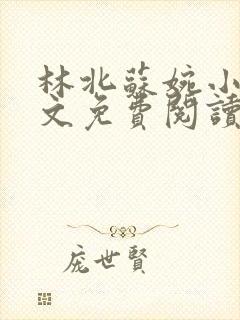 林北蘇婉小
文免費閱讀
龐世賢